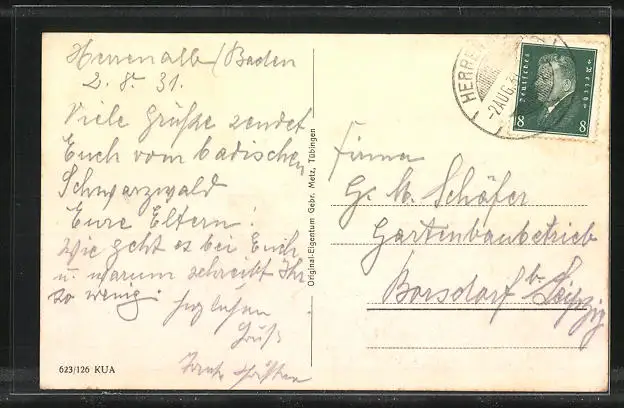 Herrenalb/Baden
2. 8. 31.
Viele Grüße sendet
Euch vom badischen
Schwarzwald
Eure Eltern!
Wie geht es bei Euch
u. warum schreibt Ihr
so wenig.
Herzlichen
Gruß
623/126 KUA
Original-Eigentum Gebr. Metz, Tübingen
HERRE
-2.AUG.31
Deutsches Reich
8 8
Firma
G. M. Schäfer
Gartenbaubetrieb
Borsdorf b. Leipzig